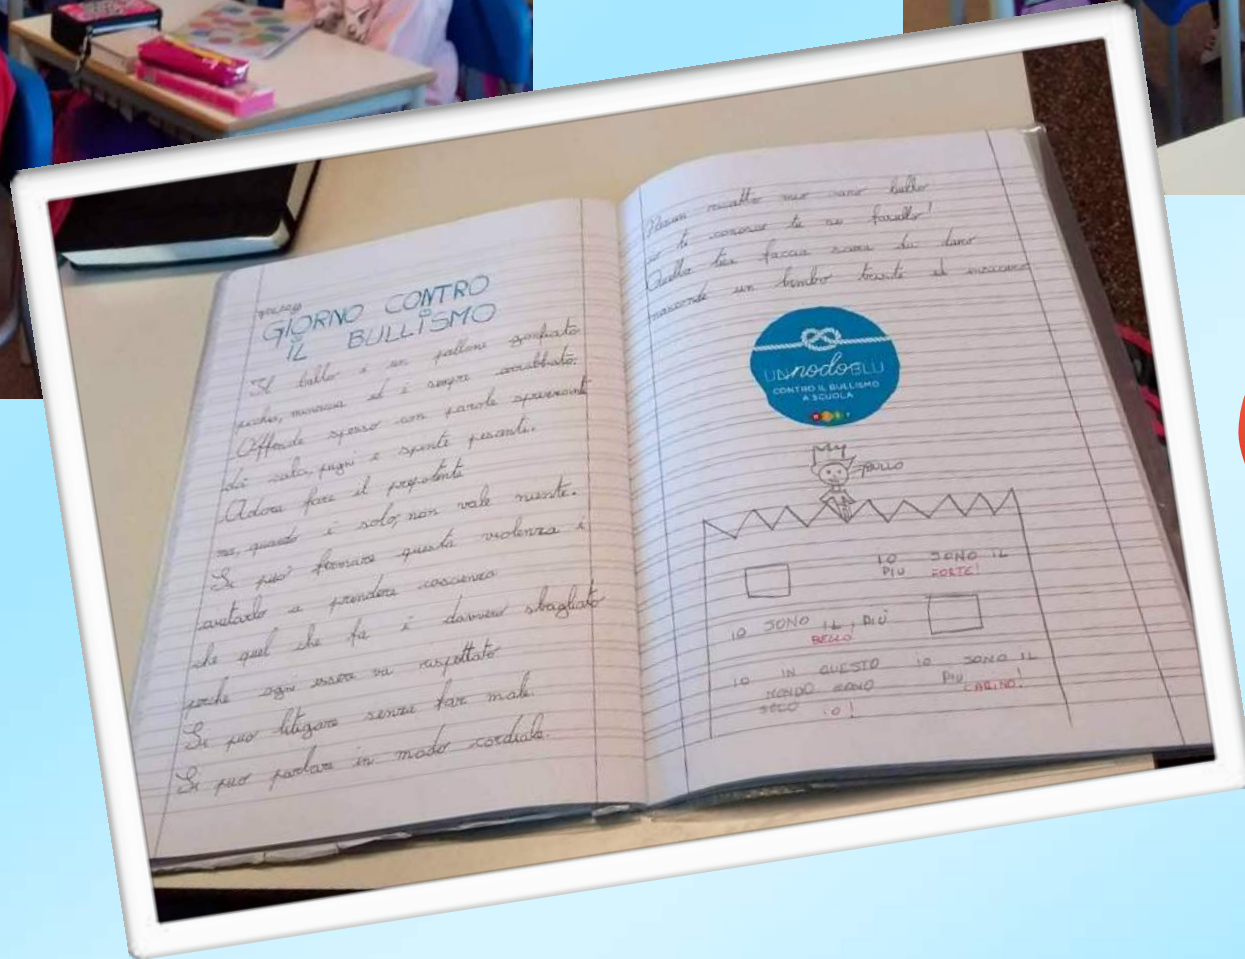 GIORNO CONTRO
IL BULLISMO
Il bullo è un pallone gonfiato
picchia, minaccia ed è sempre arrabbiato.
Offende spesso con parole sprezzanti
dà calci, pugni e spinte pesanti.
Adora fare il prepotente
ma, quando è solo, non vale niente.
Si può fermare questa violenza è
aiutarlo a prendere coscienza
che quel che fa è davvero sbagliato
perché ogni essere va rispettato
Si può litigare senza far male.
Si può parlare in modo cordiale.
Nessun ricatto mio caro bullo
io ti conviene tu sei
Quella tua faccia scura da duro
nasconde un bimbo triste ed insicuro
UN nodo BLU
CONTRO IL BULLISMO
A SCUOLA
BULLO
IO SONO IL
PIÙ FORTE!
IO SONO IL PIÙ
BELLO
IO IN QUESTO
MONDO SONO
SOLO IO!
IO SONO IL
PIÙ CARINO!